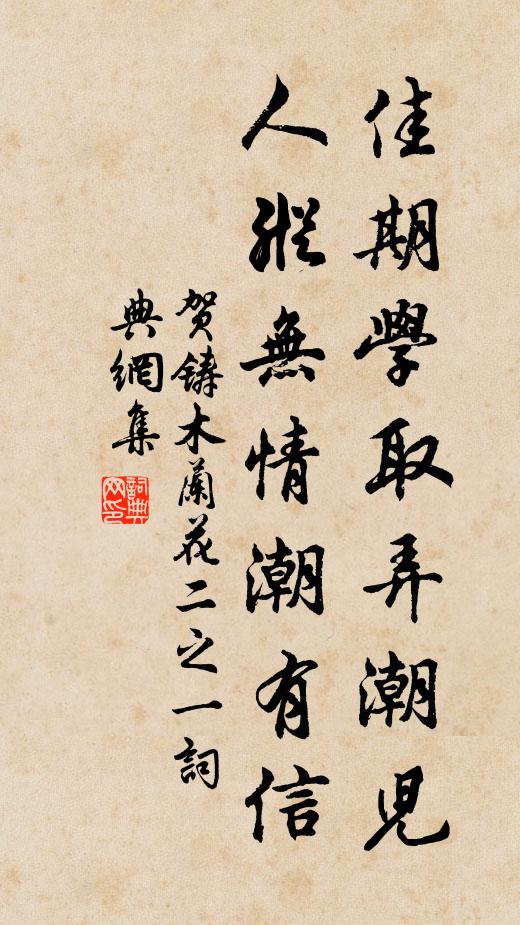 佳期學取弄潮児
人縱無情潮有信
贺鑄木蘭花二之一詞
典網集
詞典網印